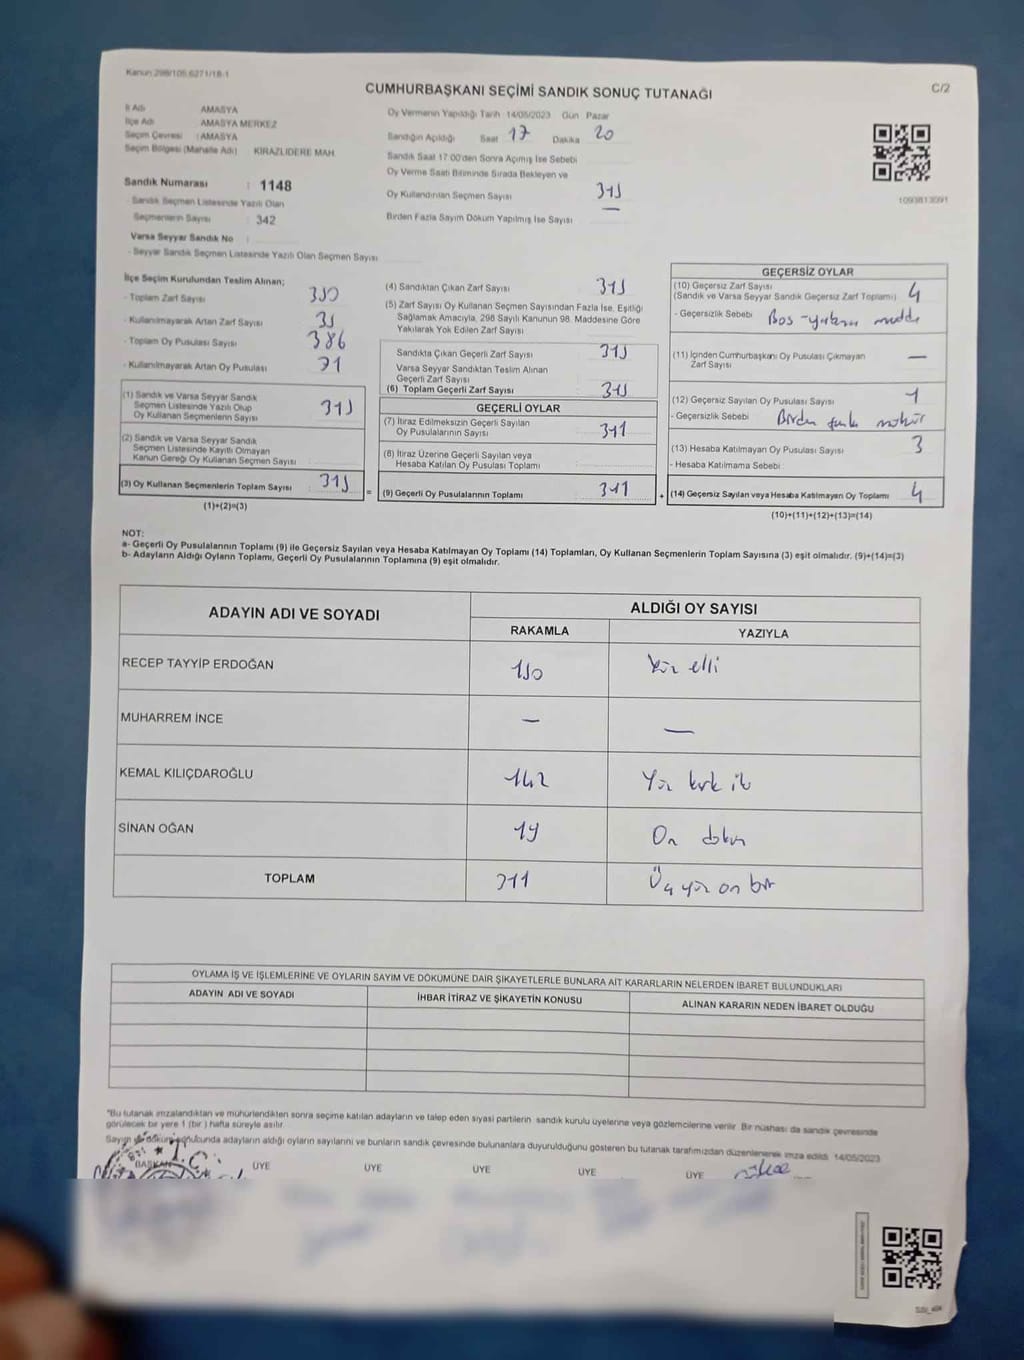 Kanun 298/105,6271/18-1
C/2
CUMHURBAŞKANI SEÇİMİ SANDIK SONUÇ TUTANAĞI
İl Adı AMASYA
İlçe Adı AMASYA MERKEZ
Seçim Çevresi : AMASYA
Seçim Bölgesi (Mahalle Adı) KİRAZLIDERE MAH.
Sandık Numarası : 1148
- Sandık Seçmen Listesinde Yazılı Olan
Seçmenlerin Sayısı : 342
Varsa Seyyar Sandık No :
- Seyyar Sandık Seçmen Listesinde Yazılı Olan Seçmen Sayısı
Oy Vermenin Yapıldığı Tarih 14/05/2023 Gün Pazar
Sandığın Açıldığı Saat 17 Dakika 20
Sandık Saat 17:00'den Sonra Açılmış İse Sebebi
Oy Verme Saati Bitiminde Sırada Bekleyen ve
Oy Kullandırılan Seçmen Sayısı 315
Birden Fazla Sayım Döküm Yapılmış İse Sayısı —
İlçe Seçim Kurulundan Teslim Alınan;
- Toplam Zarf Sayısı 350
- Kullanılmayarak Artan Zarf Sayısı 35
- Toplam Oy Pusulası Sayısı 386
- Kullanılmayarak Artan Oy Pusulası 71
(1) Sandık ve Varsa Seyyar Sandık
Seçmen Listesinde Yazılı Olup
Oy Kullanan Seçmenlerin Sayısı 315
(2) Sandık ve Varsa Seyyar Sandık
Seçmen Listesinde Kayıtlı Olmayan
Kanun Gereği Oy Kullanan Seçmen Sayısı :
(3) Oy Kullanan Seçmenlerin Toplam Sayısı : 315
(1)+(2)=(3)
(4) Sandıktan Çıkan Zarf Sayısı 315
(5) Zarf Sayısı Oy Kullanan Seçmen Sayısından Fazla İse, Eşitliği
Sağlamak Amacıyla, 298 Sayılı Kanunun 98. Maddesine Göre
Yakılarak Yok Edilen Zarf Sayısı
Sandıkta Çıkan Geçerli Zarf Sayısı 315
Varsa Seyyar Sandıktan Teslim Alınan
Geçerli Zarf Sayısı
(6) Toplam Geçerli Zarf Sayısı 315
GEÇERLİ OYLAR
(7) İtiraz Edilmeksizin Geçerli Sayılan
Oy Pusulalarının Sayısı 311
(8) İtiraz Üzerine Geçerli Sayılan veya
Hesaba Katılan Oy Pusulası Toplamı
= (9) Geçerli Oy Pusulalarının Toplamı 311
GEÇERSİZ OYLAR
(10) Geçersiz Zarf Sayısı 4
(Sandık ve Varsa Seyyar Sandık Geçersiz Zarf Toplamı)
- Geçersizlik Sebebi Boş
(11) İçinden Cumhurbaşkanı Oy Pusulası Çıkmayan
Zarf Sayısı —
(12) Geçersiz Sayılan Oy Pusulası Sayısı 1
- Geçersizlik Sebebi : Birden fazla mühür
(13) Hesaba Katılmayan Oy Pusulası Sayısı 3
- Hesaba Katılmama Sebebi :
+ (14) Geçersiz Sayılan veya Hesaba Katılmayan Oy Toplamı 4
(10)+(11)+(12)+(13)=(14)
NOT:
a- Geçerli Oy Pusulalarının Toplamı (9) ile Geçersiz Sayılan veya Hesaba Katılmayan Oy Toplamı (14) Toplamları, Oy Kullanan Seçmenlerin Toplam Sayısına (3) eşit olmalıdır. (9)+(14)=(3)
b- Adayların Aldığı Oyların Toplamı, Geçerli Oy Pusulalarının Toplamına (9) eşit olmalıdır.
ADAYIN ADI VE SOYADI ALDIĞI OY SAYISI
RAKAMLA YAZIYLA
RECEP TAYYİP ERDOĞAN 150 Yüz elli
MUHARREM İNCE — —
KEMAL KILIÇDAROĞLU 142 Yüz kırk iki
SİNAN OĞAN 19 On dokuz
TOPLAM 311 Üç yüz on bir
OYLAMA İŞ VE İŞLEMLERİNE VE OYLARIN SAYIM VE DÖKÜMÜNE DAİR ŞİKAYETLERLE BUNLARA AİT KARARLARIN NELERDEN İBARET BULUNDUKLARI
ADAYIN ADI VE SOYADI İHBAR İTİRAZ VE ŞİKAYETİN KONUSU ALINAN KARARIN NEDEN İBARET OLDUĞU
*Bu tutanak imzalandıktan ve mühürlendikten sonra seçime katılan adayların ve talep eden siyasi partilerin sandık kurulu üyelerine veya gözlemcilerine verilir. Bir nüshası da sandık çevresinde
görülecek bir yere 1 (bir) hafta süreyle asılır.
Sayım ve döküm sonucunda adayların aldığı oyların sayılarını ve bunların sandık çevresinde bulunanlara duyurulduğunu gösteren bu tutanak tarafımızdan düzenlenerek imza edildi. 14/05/2023
BAŞKAN T.C. ÜYE ÜYE ÜYE ÜYE ÜYE